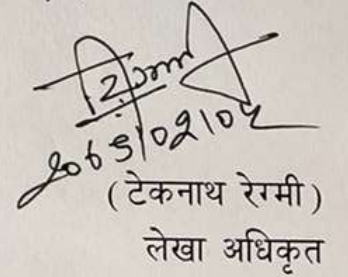 २०७९/०२/०५
(टेकनाथ रेग्मी)
लेखा अधिकृत